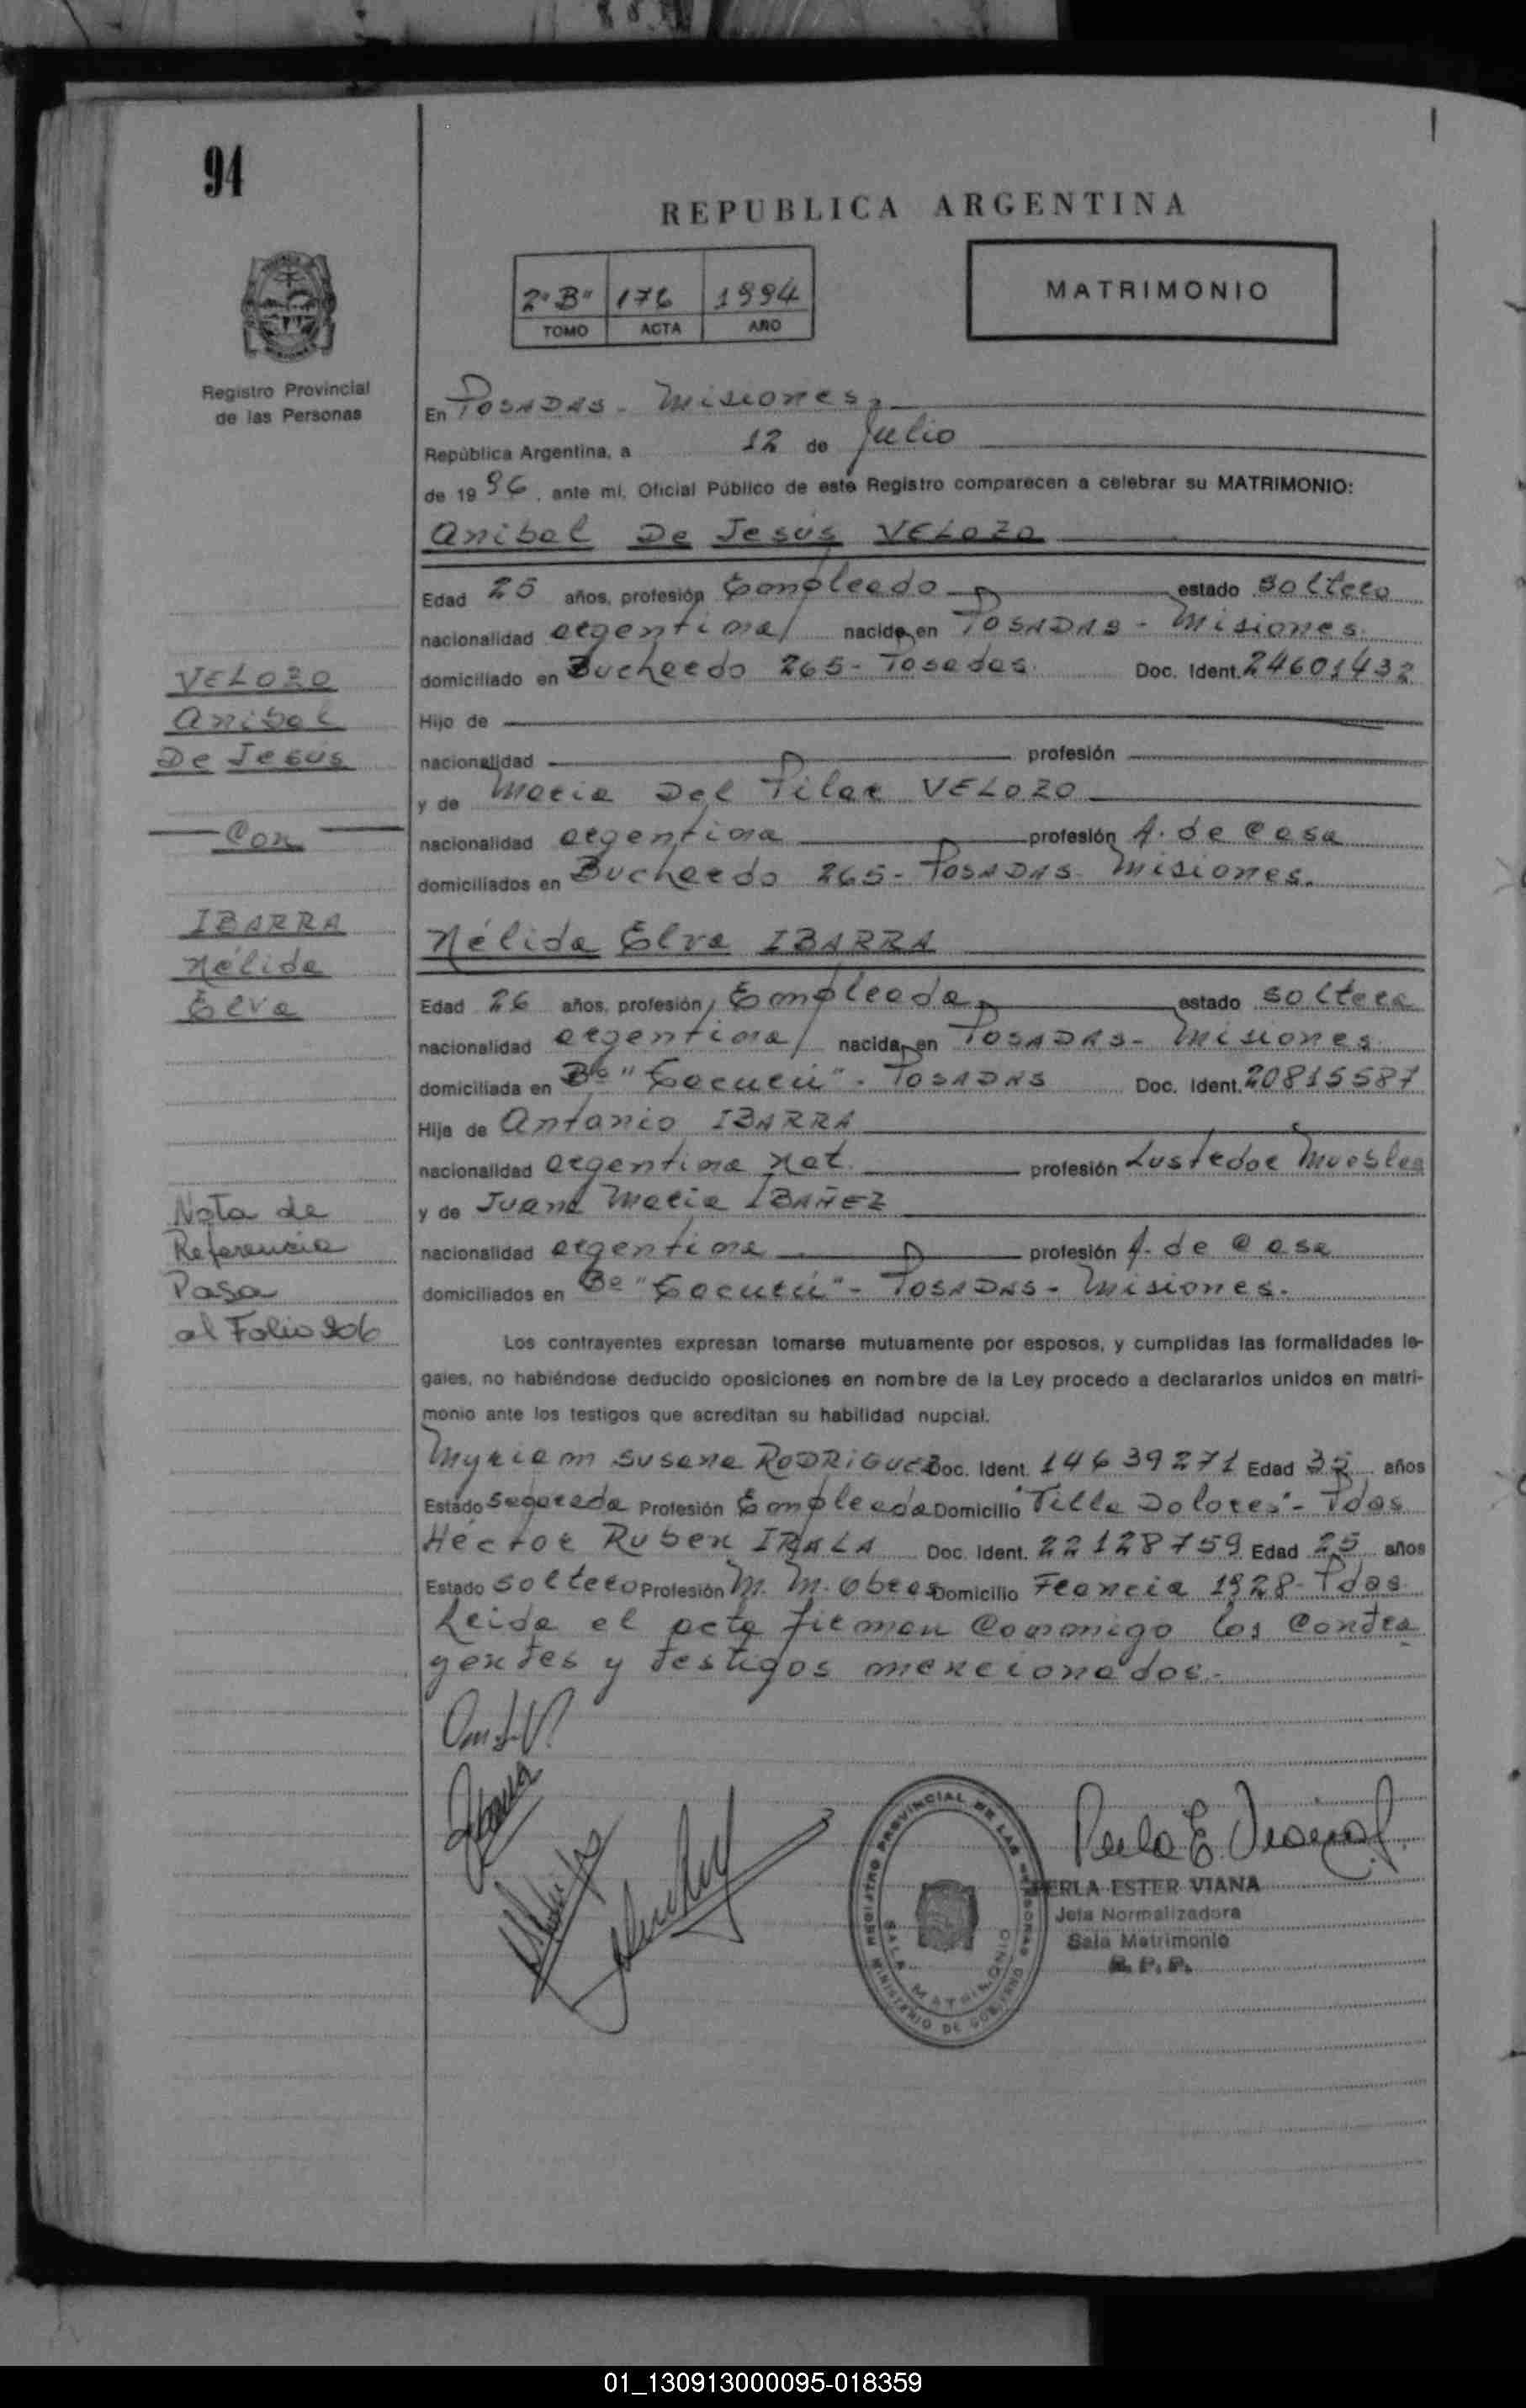 94
REPUBLICA ARGENTINA
2"B" 176 1994
TOMO ACTA AÑO
MATRIMONIO
Registro Provincial
de las Personas
En POSADAS - Misiones,
República Argentina, a 12 de Julio
de 1996, ante mí, Oficial Público de este Registro comparecen a celebrar su MATRIMONIO:
Anibal De Jesús VELOZO
Edad 25 años, profesión Empleado estado soltero
nacionalidad argentina nacido en POSADAS - Misiones.
domiciliado en Buchardo 265 - Posadas. Doc. Ident. 24601432
Hijo de
nacionalidad profesión
y de Maria Del Pilar VELOZO
nacionalidad argentina profesión A. de Casa
domiciliados en Buchardo 265 - POSADAS - Misiones.
Nélida Elva IBARRA
Edad 26 años, profesión Empleada estado soltera
nacionalidad argentina nacida en POSADAS - Misiones.
domiciliada en Bº "Cocueú" - POSADAS Doc. Ident. 20815587
Hija de Antonio IBARRA
nacionalidad argentina nat. profesión Lustrador Muebles
y de Juana Maria IBAÑEZ
nacionalidad argentina profesión A. de Casa
domiciliados en Bº - POSADAS - Misiones.
VELOZO
Anibal
De Jesús
Con
IBARRA
Nélida
Elva
Nota de
Referencia
Pasa
al Folio 206
Los contrayentes expresan tomarse mutuamente por esposos, y cumplidas las formalidades le-
gales, no habiéndose deducido oposiciones en nombre de la Ley procedo a declararlos unidos en matri-
monio ante los testigos que acreditan su habilidad nupcial.
Myriam Susana RODRIGUEZ Doc. Ident. 14639271 Edad 35 años
Estado Separada Profesión Empleada Domicilio "Villa Dolores" - Pdas
Héctor Ruben IRALA Doc. Ident. 22128759 Edad 25 años
Estado soltero Profesión M. M. Obras Domicilio Francia 1928 - Pdas
Leida el acta firman conmigo los contra
yentes y testigos mencionados.-
REGISTRO PROVINCIAL DE LAS PERSONAS
SALA MATRIMONIO
MINISTERIO DE GOBIERNO
PERLA ESTER VIANA
Jefa Normalizadora
Sala Matrimonio
R. P. P.
01_130913000095-018359